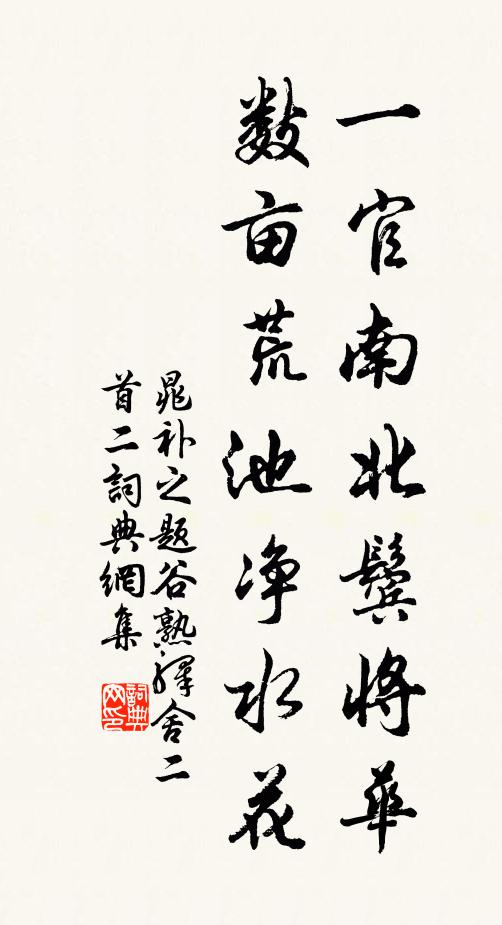 一官南北鬓将華
数亩荒池净水花
晁补之题谷熟驛舍二
首二詞典網集
詞典
网印